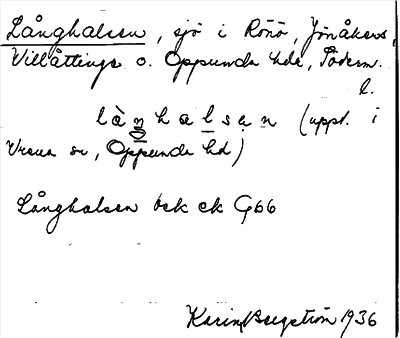 Långhalsen, sjö i Rönö, Jönåkers,
Villåttinge o. Oppunda hde, Söderm.
l.
làŋhalsan (uppt. i
Vrena sn, Oppunda hd)
Långhalsen bek ek G66
Karin Bergström 1936